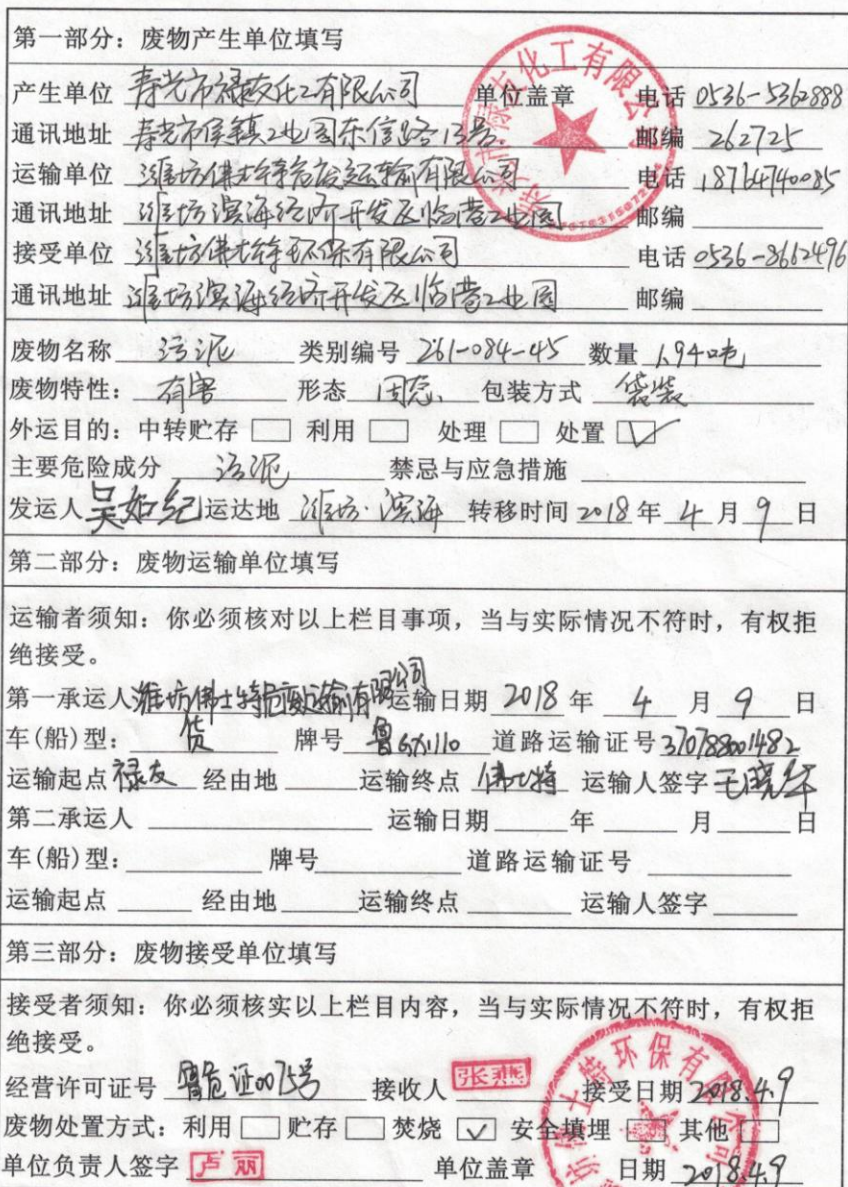 第一部分：废物产生单位填写
产生单位 寿光市禄友化工有限公司 单位盖章 电话 0536-5362888
通讯地址 寿光市侯镇工业园东信路13号 邮编 262725
运输单位 潍坊佛士特危废运输有限公司 电话 18764740085
通讯地址 潍坊滨海经济开发区临港工业园 邮编
接受单位 潍坊佛士特环保有限公司 电话 0536-8662496
通讯地址 潍坊滨海经济开发区临港工业园 邮编
废物名称 污泥 类别编号 261-084-45 数量 1.94吨
废物特性：有害 形态 固态 包装方式 袋装
外运目的：中转贮存 □ 利用 □ 处理 □ 处置 ☑
主要危险成分 污泥 禁忌与应急措施
发运人 吴 纪 运达地 潍坊·滨海 转移时间 2018 年 4 月 9 日
第二部分：废物运输单位填写
运输者须知：你必须核对以上栏目事项，当与实际情况不符时，有权拒
绝接受。
第一承运人 潍坊佛士特危废运输有限公司 运输日期 2018 年 4 月 9 日
车(船)型：货 牌号 鲁GX1110 道路运输证号 370788001482
运输起点 禄友 经由地 运输终点 佛士特 运输人签字 王晓华
第二承运人 运输日期 年 月 日
车(船)型： 牌号 道路运输证号
运输起点 经由地 运输终点 运输人签字
第三部分：废物接受单位填写
接受者须知：你必须核实以上栏目内容，当与实际情况不符时，有权拒
绝接受。
经营许可证号 鲁危证0075号 接收人 张 接受日期 2018.4.9
废物处置方式：利用 □ 贮存 □ 焚烧 ☑ 安全填埋 □ 其他 □
单位负责人签字 卢丽 单位盖章 日期 2018.4.9